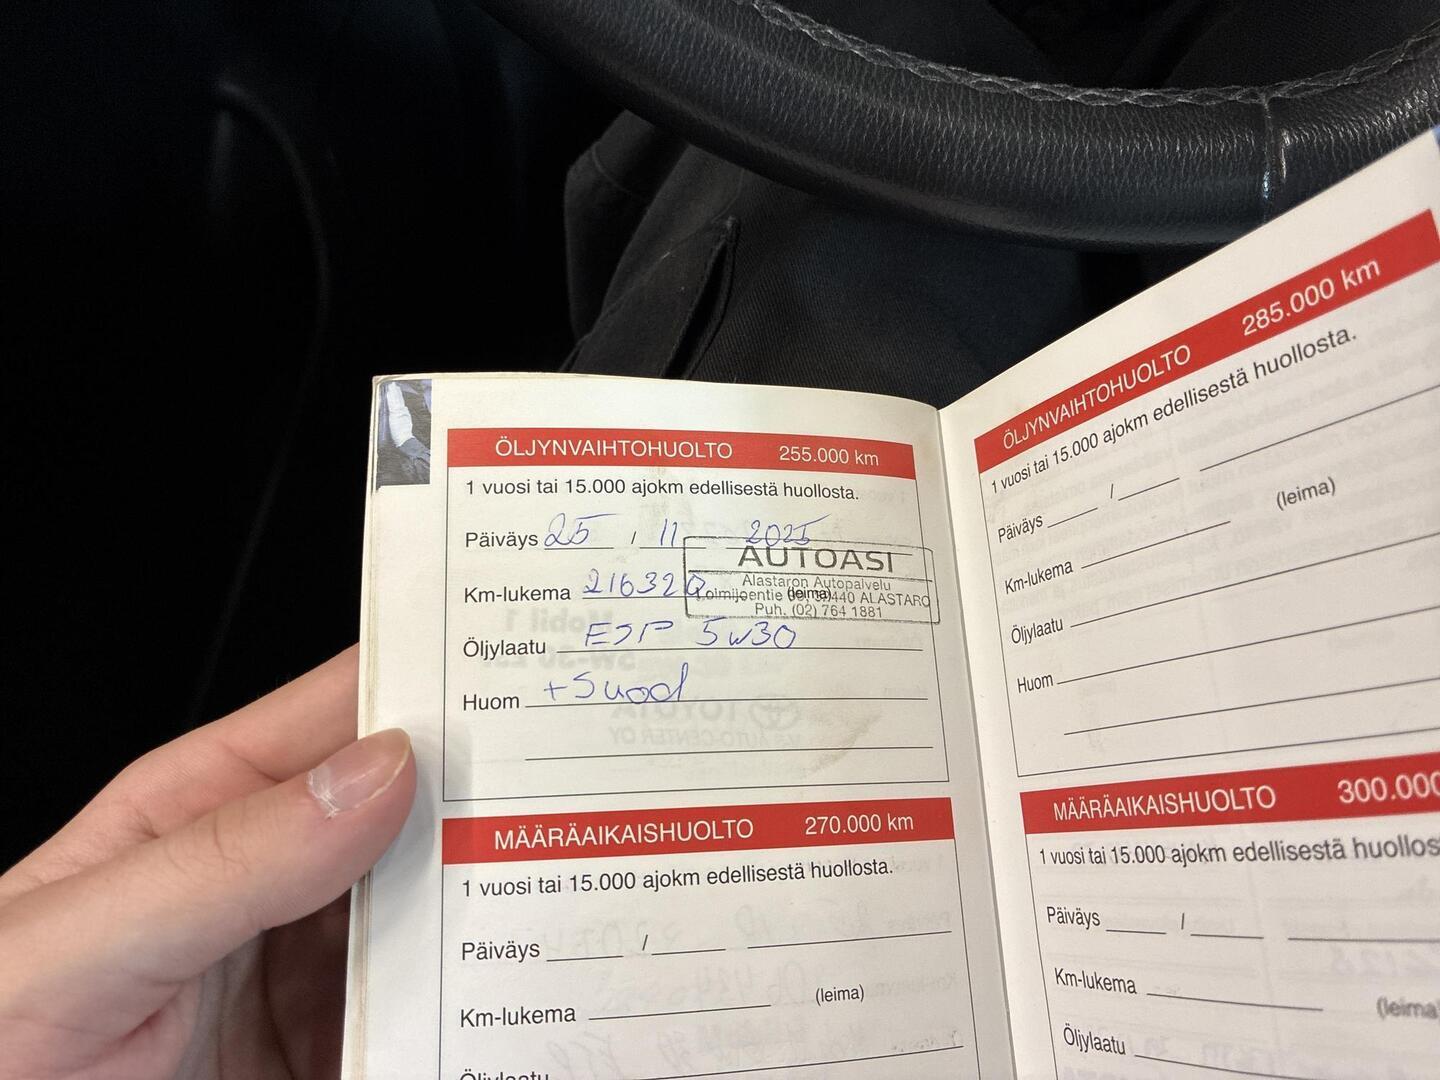 ÖLJYNVAIHTOHUOLTO 255.000 km
1 vuosi tai 15.000 ajokm edellisestä huollosta.
Päiväys 25 / 11 2025
AUTOASI
Alastaron Autopalvelu
ALASTARO
Puh. (02) 764 1881
Km-lukema 216320 (leima)
Öljylaatu ESP 5w30
Huom +Suod
MÄÄRÄAIKAISHUOLTO 270.000 km
1 vuosi tai 15.000 ajokm edellisestä huollosta.
Päiväys /
(leima)
Km-lukema
Öljylaatu
ÖLJYNVAIHTOHUOLTO 285.000 km
1 vuosi tai 15.000 ajokm edellisestä huollosta.
Päiväys /
(leima)
Km-lukema
Öljylaatu
Huom
MÄÄRÄAIKAISHUOLTO 300.000
1 vuosi tai 15.000 ajokm edellisestä huollos
Päiväys /
Km-lukema
(leima)
Öljylaatu